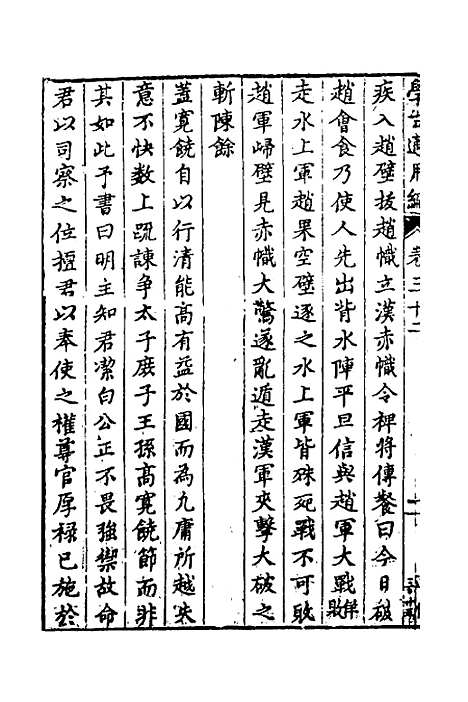 學古適用編 卷三十二
疾入趙壁拔趙幟立漢赤幟令裨將傳餐曰今日破
趙會食乃使人先出背水陣平旦信與趙軍大戰佯敗
走水上軍趙果空壁逐之水上軍皆殊死戰不可敗
趙軍歸壁見赤幟大驚遂亂遁走漢軍夾擊大破之
斬陳餘
蓋寬饒自以行清能高有益於國而為九庸所越英
意不快数上疏諫争太子庶子王孫高寬饒節而非
其如此予書曰明主知君潔白公正不畏強禦故命
君以司察之位擅君以奉使之權尊官厚祿已施於